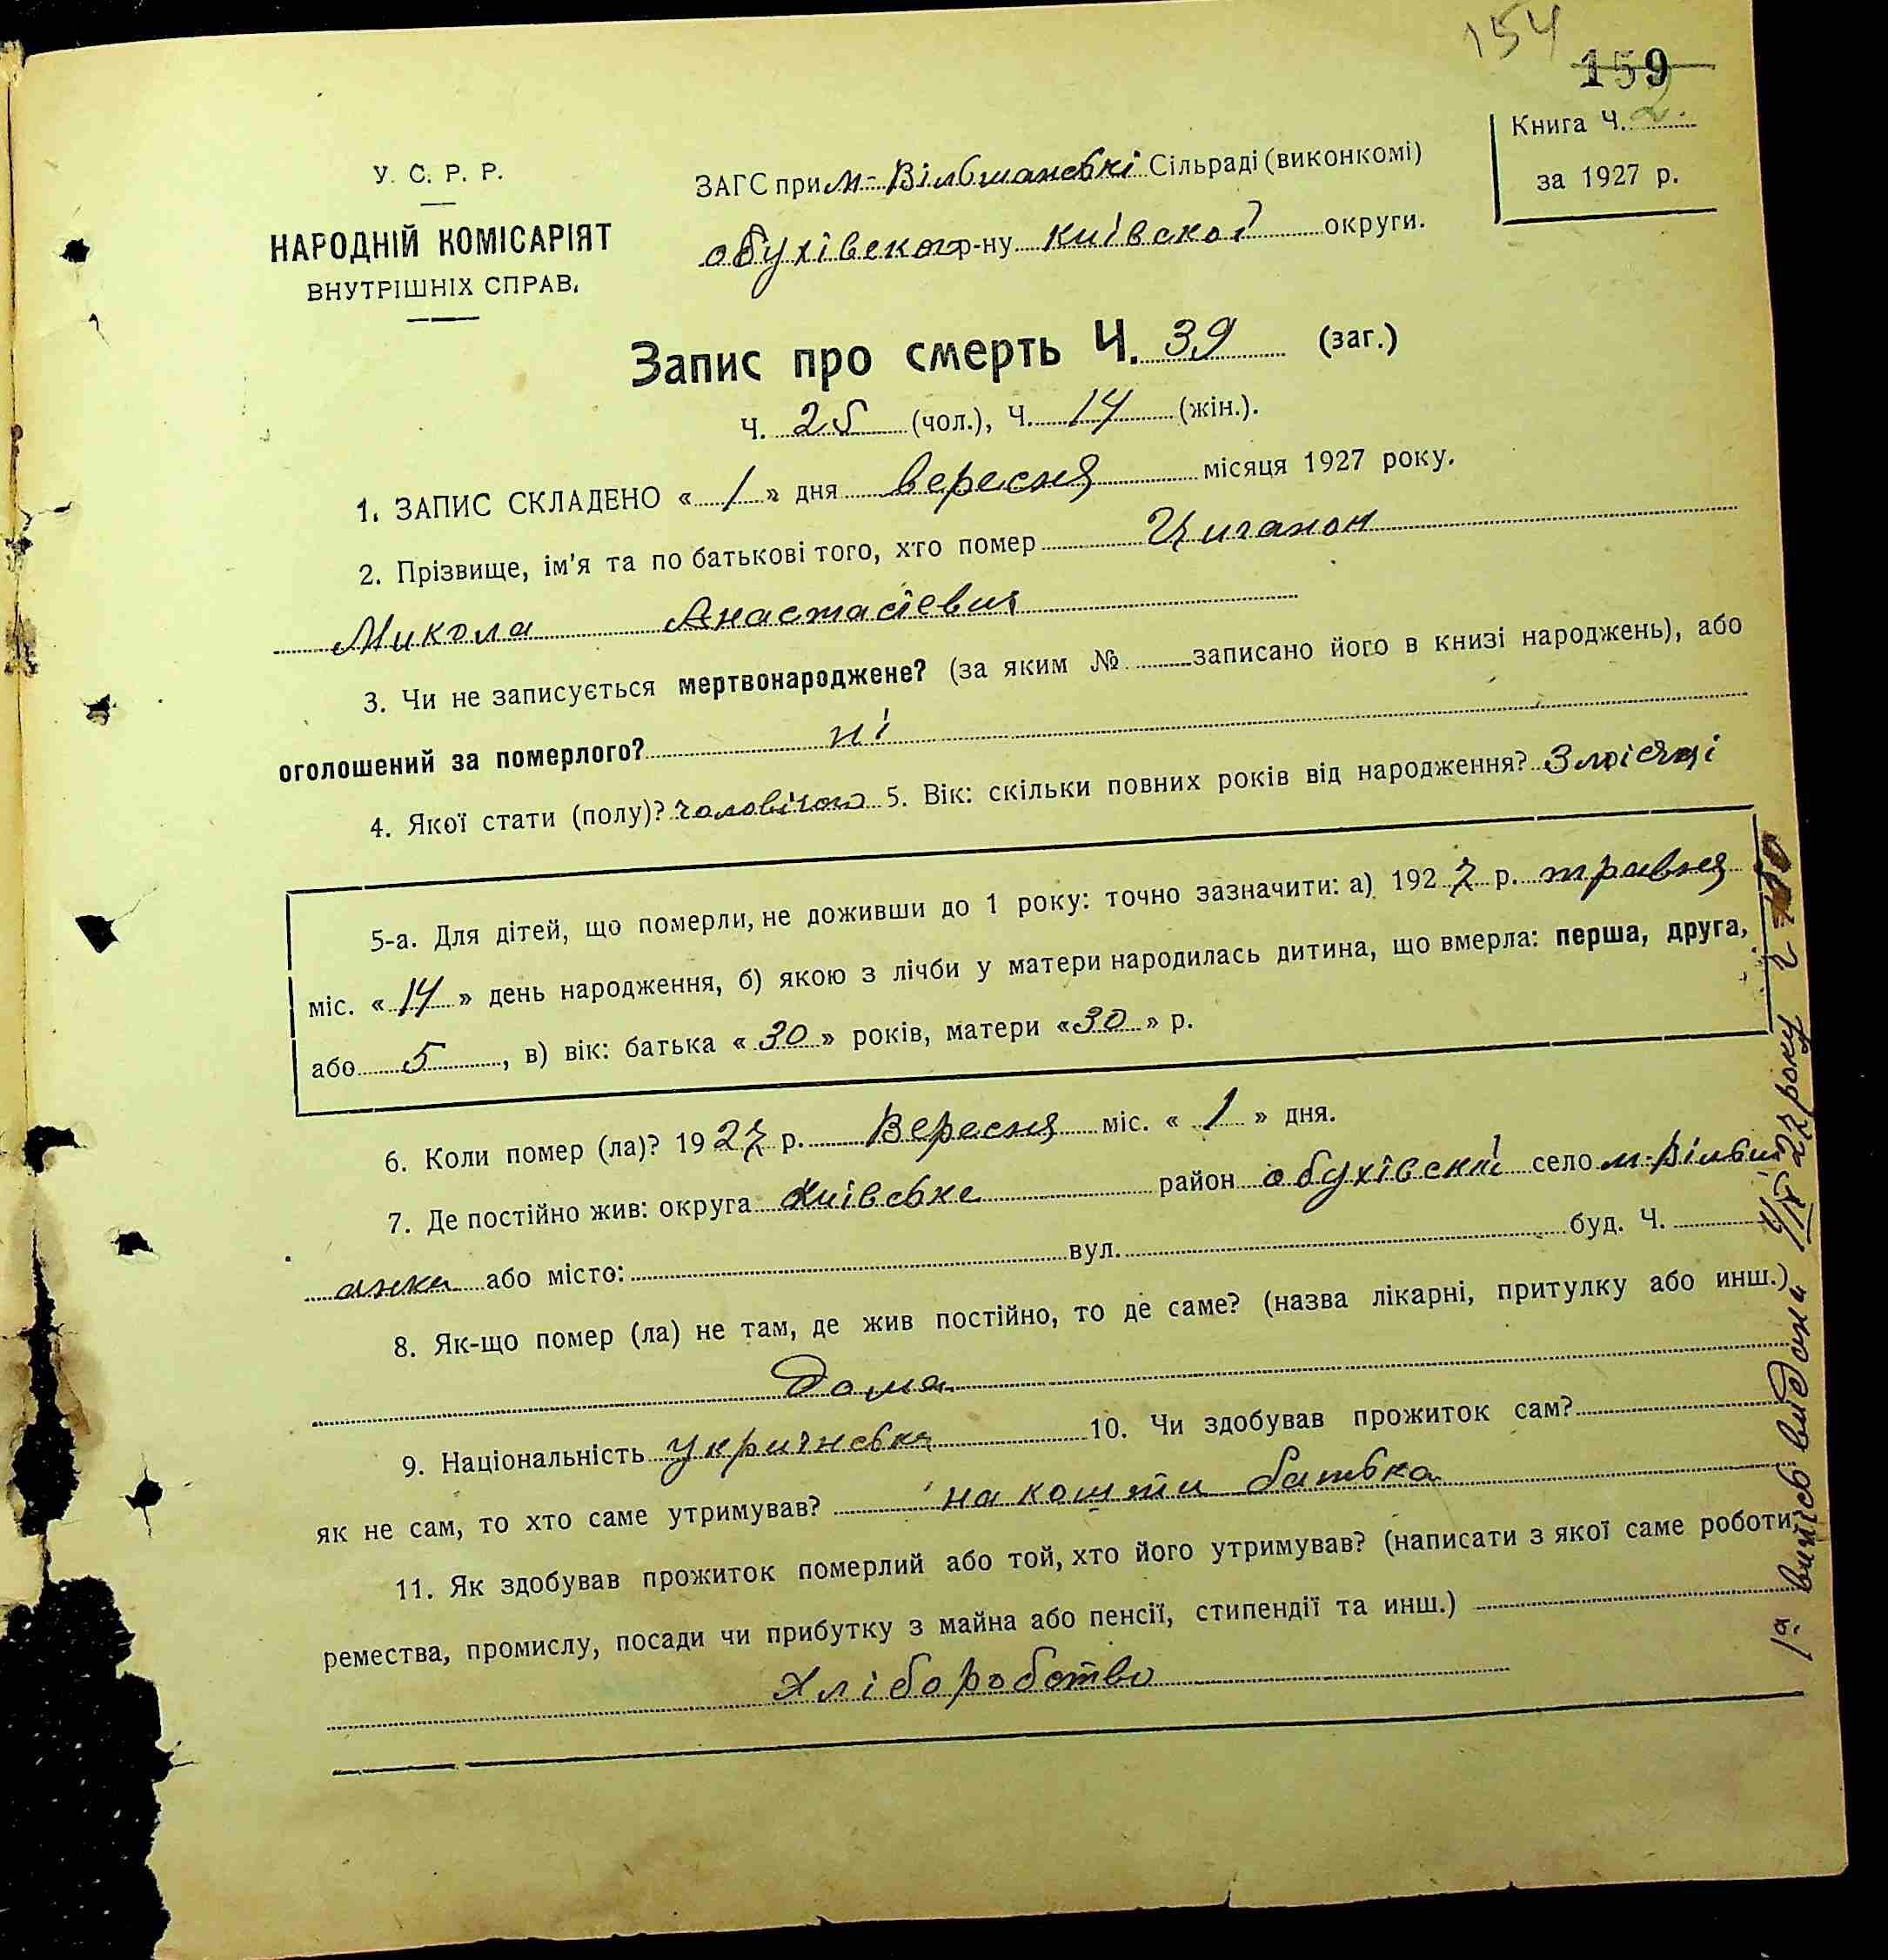 154
159
Книга Ч. 2.
за 1927 р.
У. С. Р. Р.
НАРОДНІЙ КОМІСАРІЯТ
ВНУТРІШНІХ СПРАВ.
ЗАГС при м-Вільшанські Сільраді (виконкомі)
обухівског р-ну київскої округи.
Запис про смерть Ч. 39 (заг.)
Ч. 25 (чол.), Ч. 14 (жін.).
1. ЗАПИС СКЛАДЕНО « 1 » дня вересня місяця 1927 року.
2. Прізвище, ім'я та по батькові того, хто помер Циганок
Микола Анастасієвич
3. Чи не записується мертвонароджене? (за яким № записано його в книзі народжень), або
оголошений за померлого? ні
4. Якої стати (полу)? чоловічого 5. Вік: скільки повних років від народження? 3 місяці
5-а. Для дітей, що померли, не доживши до 1 року: точно зазначити: а) 1927 р. травня
міс. « 14 » день народження, б) якою з лічби у матери народилась дитина, що вмерла: перша, друга,
або 5, в) вік: батька « 30 » років, матери « 30 » р.
6. Коли помер (ла)? 1927 р. Вересня міс. « 1 » дня.
7. Де постійно жив: округа Київське район обухівскі село м-Вільш
анка або місто: вул. буд. Ч.
8. Як-що помер (ла) не там, де жив постійно, то де саме? (назва лікарні, притулку або инш.)
Дома
9. Національність українська 10. Чи здобував прожиток сам?
як не сам, то хто саме утримував? на кошти батька
11. Як здобував прожиток померлий або той, хто його утримував? (написати з якої саме роботи,
ремества, промислу, посади чи прибутку з майна або пенсії, стипендії та инш.)
Хліборобство
витісь видани 1/IX 27 року